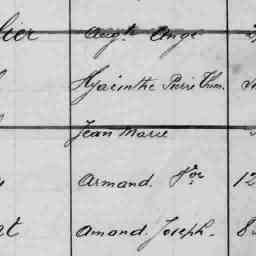 lier Augte Ange
Hyacinthe Pierre Thom.
Jean Marie
Armand. Fois 12
rt Amand. Joseph. 8